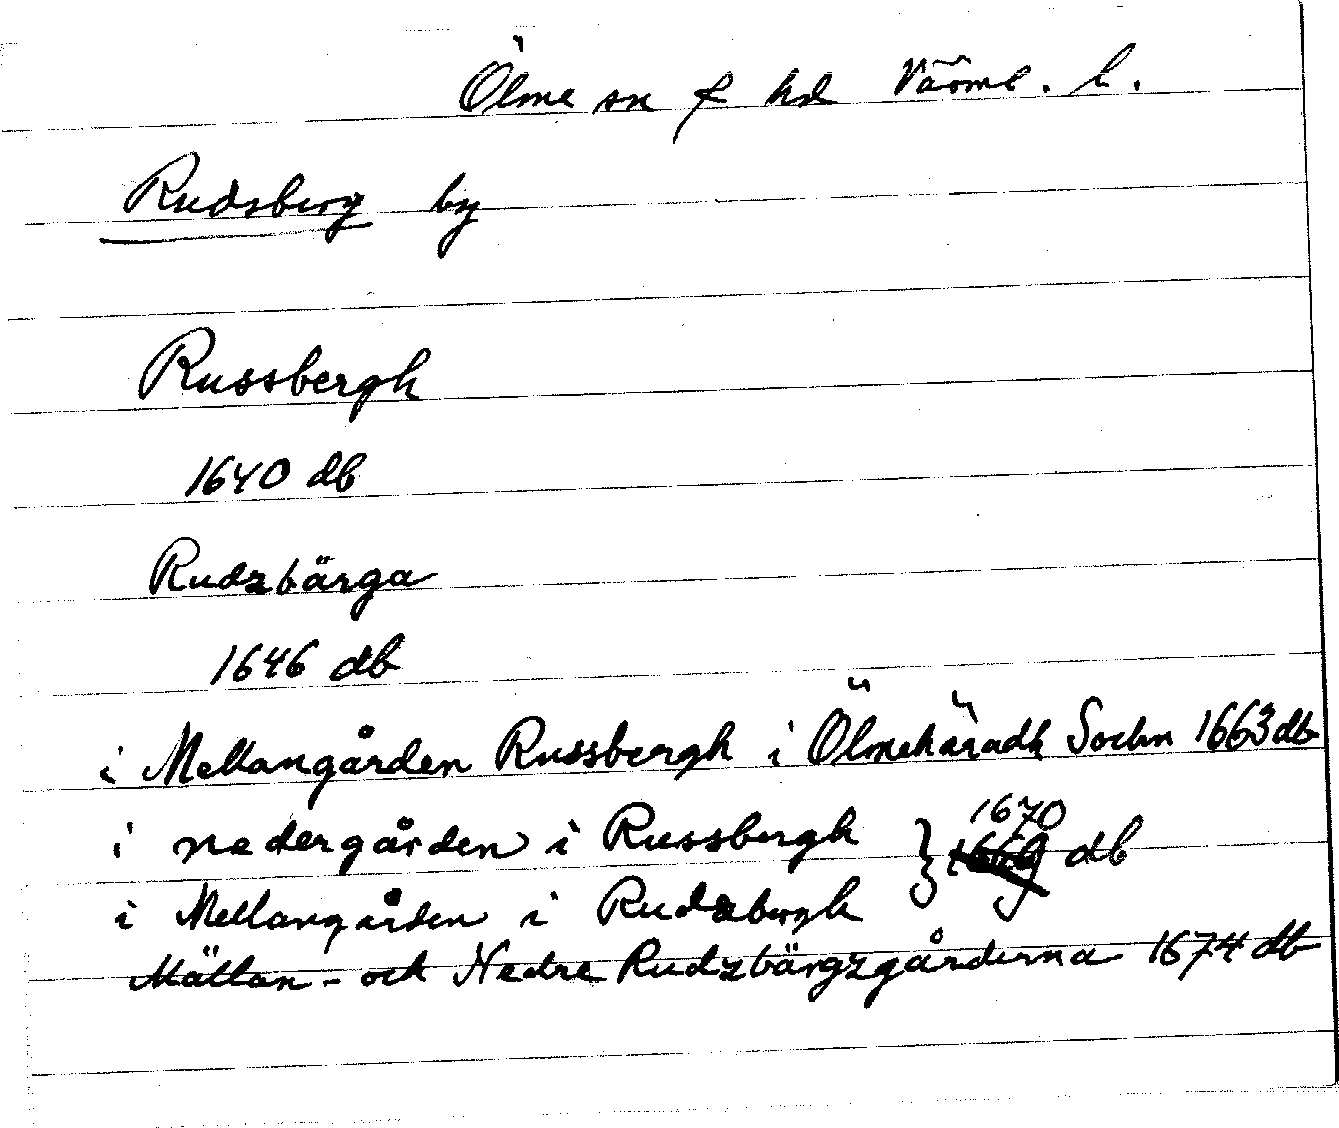 Ölme sn f hd Värml. l.
Rudsberg by
Russbergh
1640 db
Rudzbärga
1646 db
i Mellangården Russbergh i Ölmehäradh Sochn 1663 db
i nedergården i Russbergh } 1670 db
i Mellangården i Rudzbergh
Mällan- och Nedre Rudzbärgzgårderna 1674 db